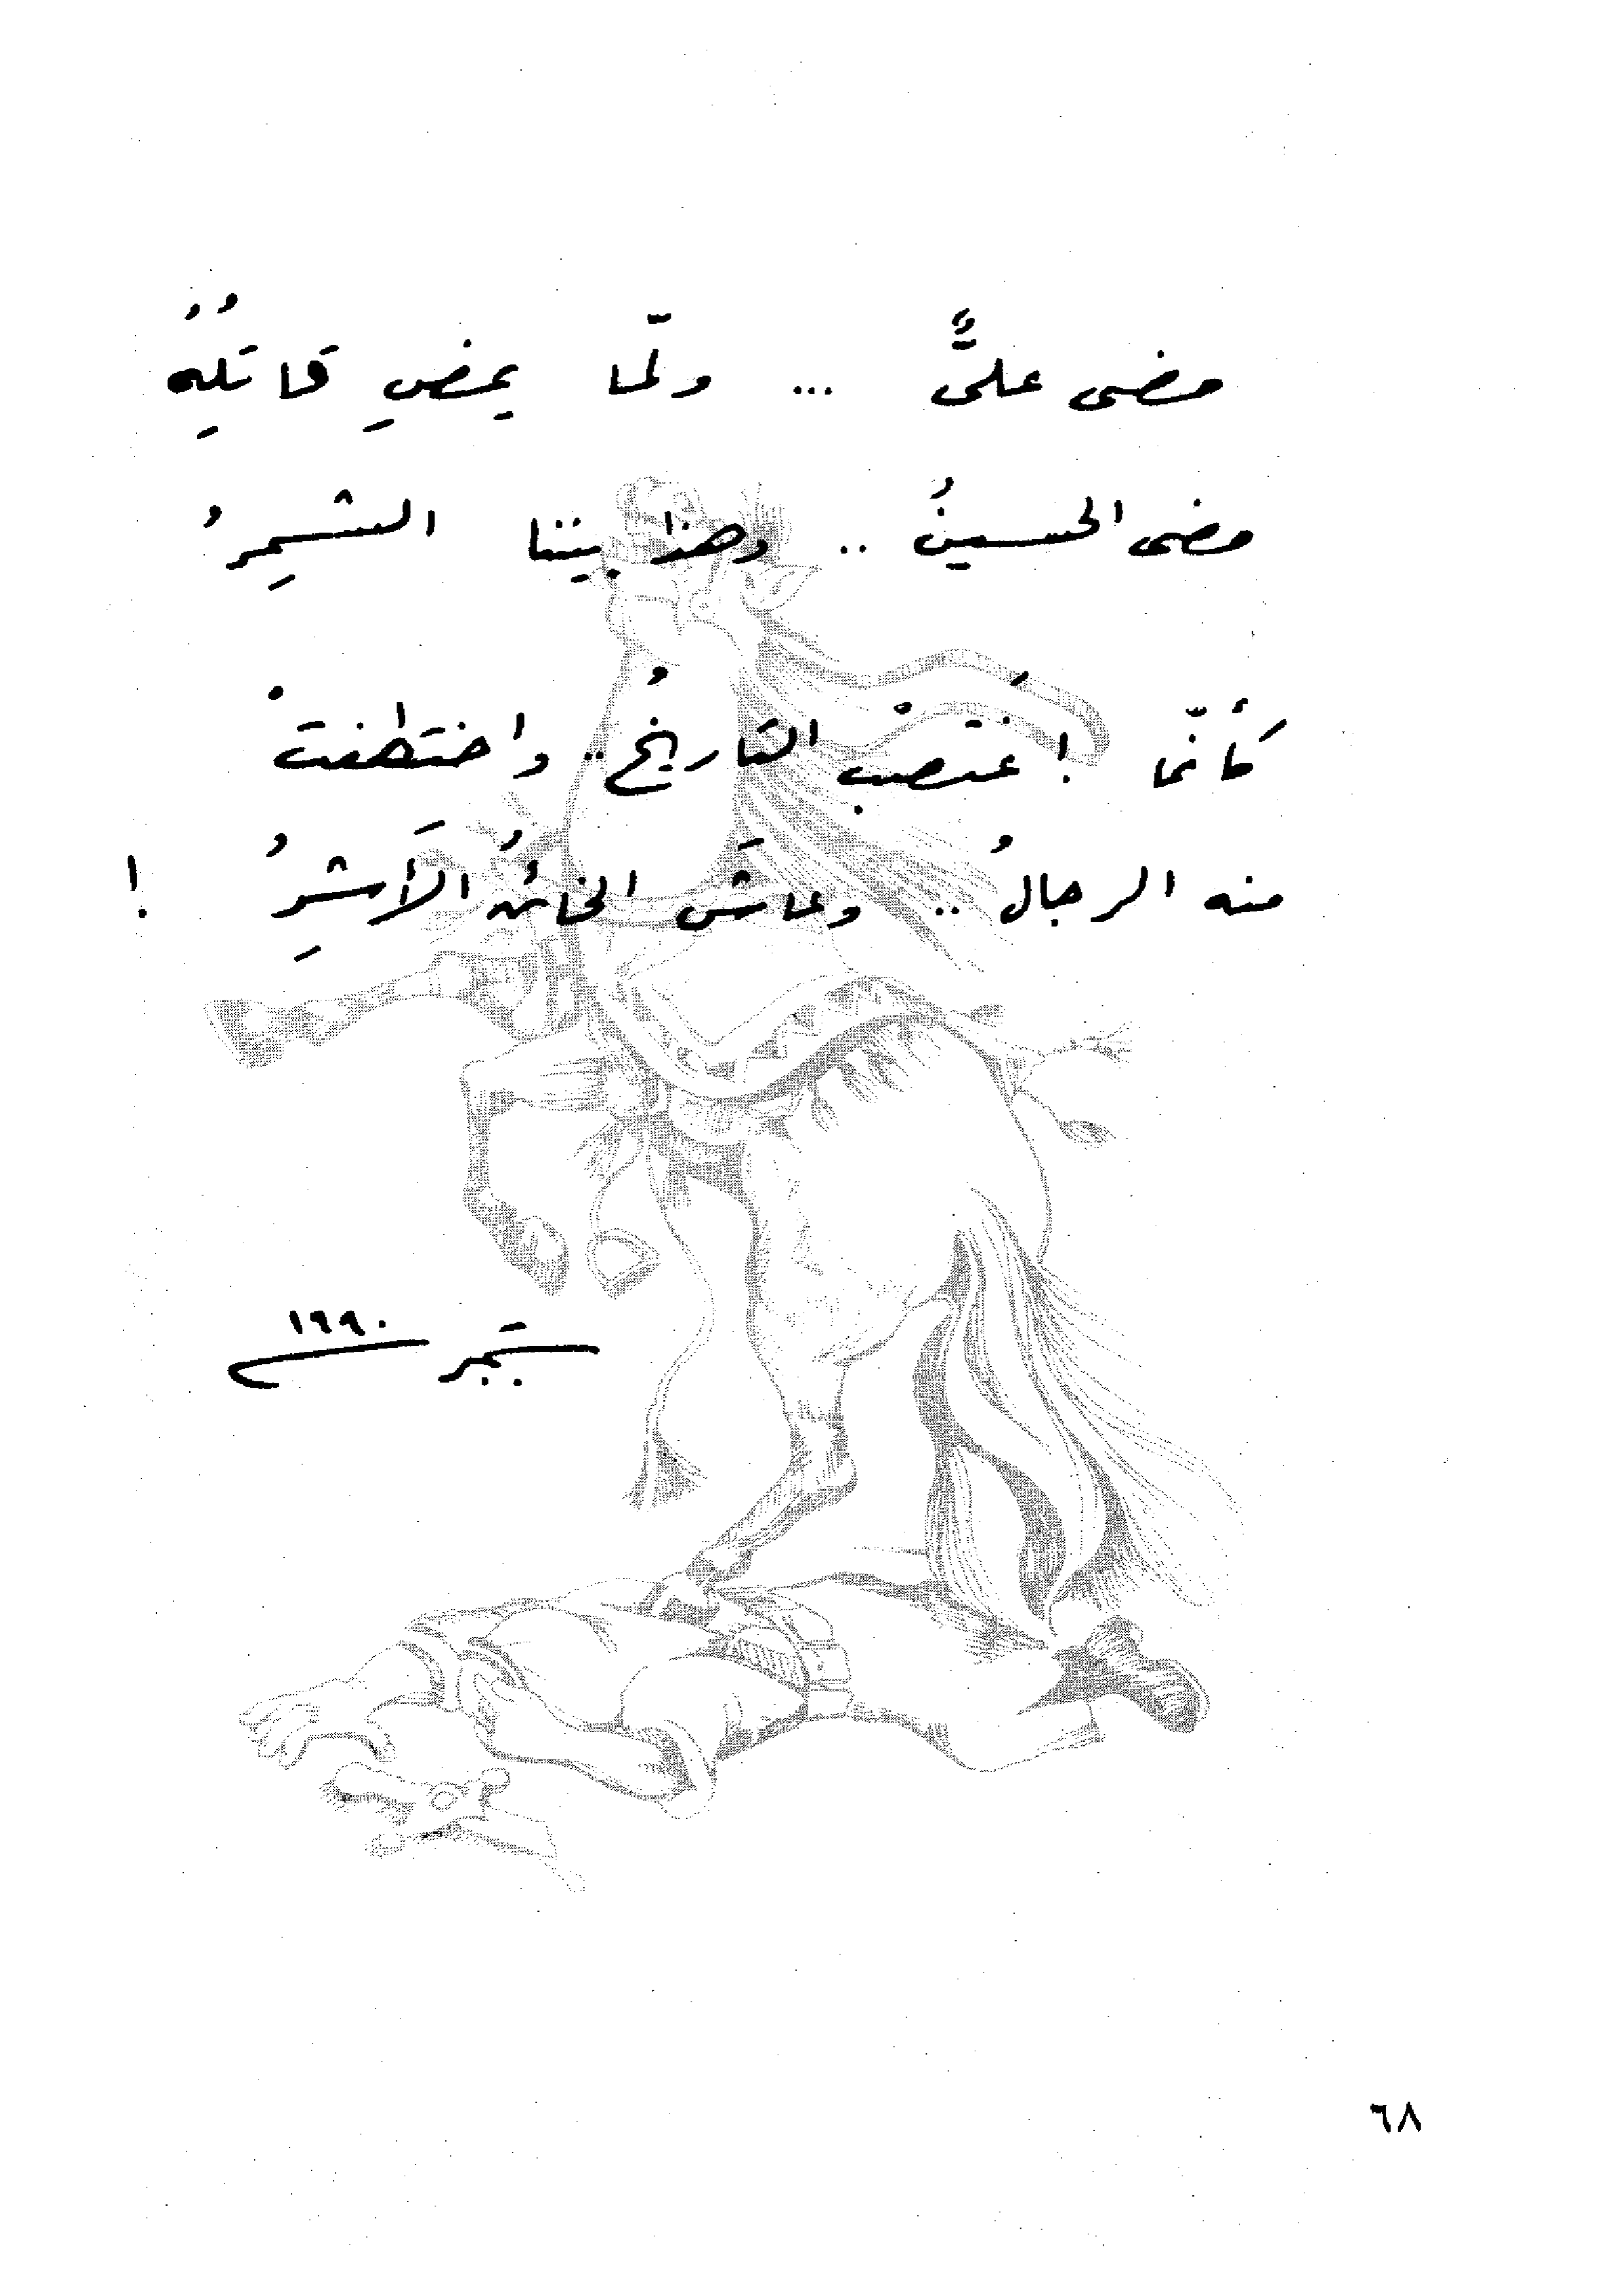 مضى عليٌّ ... ولَمّا يمضِ قاتِلُهُ
مضى الحسينُ .. وهذا بيننا الشمِرُ
كأنّما اغتُصِبَ التاريخُ .. واختطفتْ
منه الرجالُ .. وعاشَ الخائنُ الأَشِرُ !
١٩٩٠
٦٨